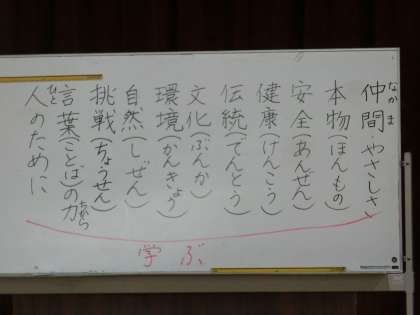 仲間・やさしさ
なかま
本物(ほんもの)
安全(あんぜん)
健康(けんこう)
伝統(でんとう)
文化(ぶんか)
環境(かんきょう)
自然(しぜん)
挑戦(ちょうせん)
言葉(ことば)の力
ちから
人のために
ひと
学ぶ